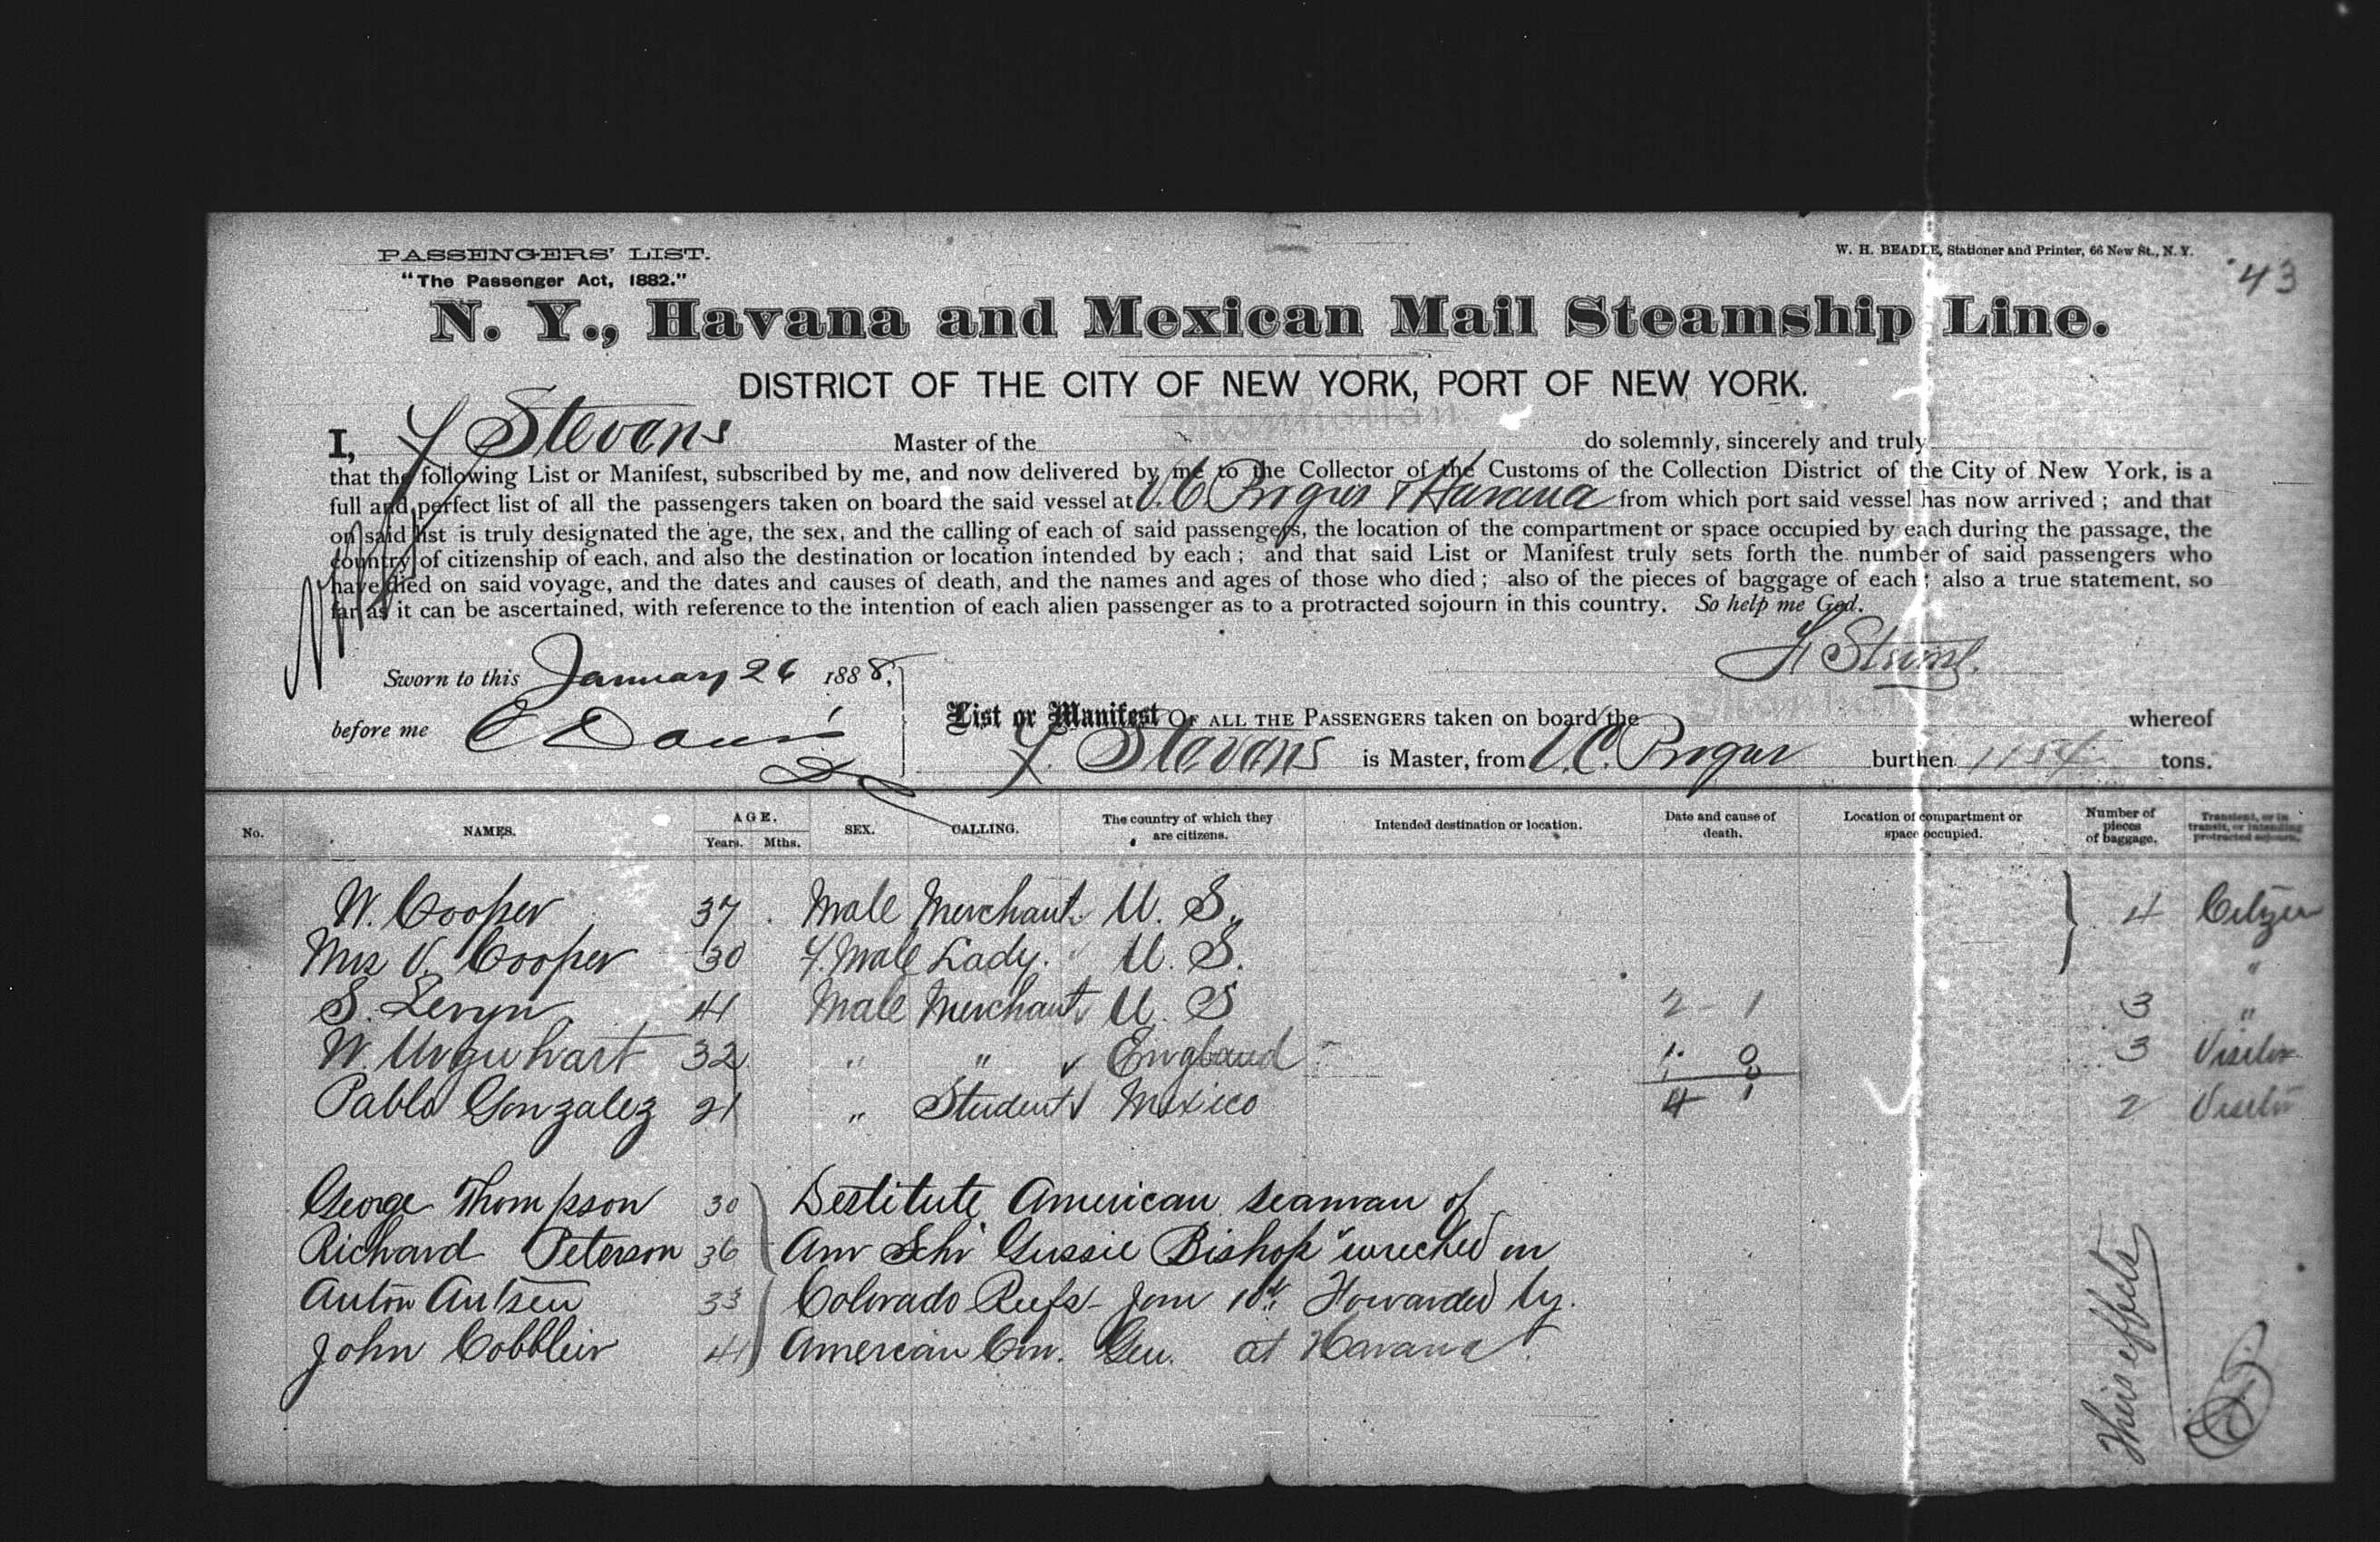 PASSENGERS' LIST.
"The Passenger Act, 1882."
W. H. BEADLE, Stationer and Printer, 66 New St., N. Y.
43
N. Y., Havana and Mexican Mail Steamship Line.
DISTRICT OF THE CITY OF NEW YORK, PORT OF NEW YORK.
I, F Stevens Master of the do solemnly, sincerely and truly
that the following List or Manifest, subscribed by me, and now delivered by me to the Collector of the Customs of the Collection District of the City of New York, is a
full and perfect list of all the passengers taken on board the said vessel at V. C. & Havana from which port said vessel has now arrived; and that
on said list is truly designated the age, the sex, and the calling of each of said passengers, the location of the compartment or space occupied by each during the passage, the
country of citizenship of each, and also the destination or location intended by each; and that said List or Manifest truly sets forth the number of said passengers who
have died on said voyage, and the dates and causes of death, and the names and ages of those who died; also of the pieces of baggage of each; also a true statement, so
far as it can be ascertained, with reference to the intention of each alien passenger as to a protracted sojourn in this country. So help me God.
Sworn to this January 26 1888,
before me C Davis
List or Manifest OF ALL THE PASSENGERS taken on board the whereof
F. Stevens is Master, from V. C. burthen 1154 tons.
No. NAMES. AGE. Years. Mths. SEX. CALLING. The country of which they are citizens. Intended destination or location. Date and cause of death. Location of compartment or space occupied. Number of pieces of baggage. Transient, or in transit, or intending protracted sojourn.
W. Cooper 37 Male Merchant U. S. 4 Citizen
Mrs V. Cooper 30 F. Male Lady. U. S. "
S. Levyn 41 Male Merchant U. S 2 - 1 3 "
W. Urquhart 32 " " England 1. 0 3 Visitor
Pablo Gonzalez 21 " Student Mexico 4 1 2 Visitor
George Thompson 30 Destitute American seaman of
Richard Peterson 36 Am Schr Gussie Bishop" wrecked on
Anton Antsen 33 Colorado Reefs - Jany 10th. Forwarded by.
John 41 American Con. Gen. at Havana.
Their effects